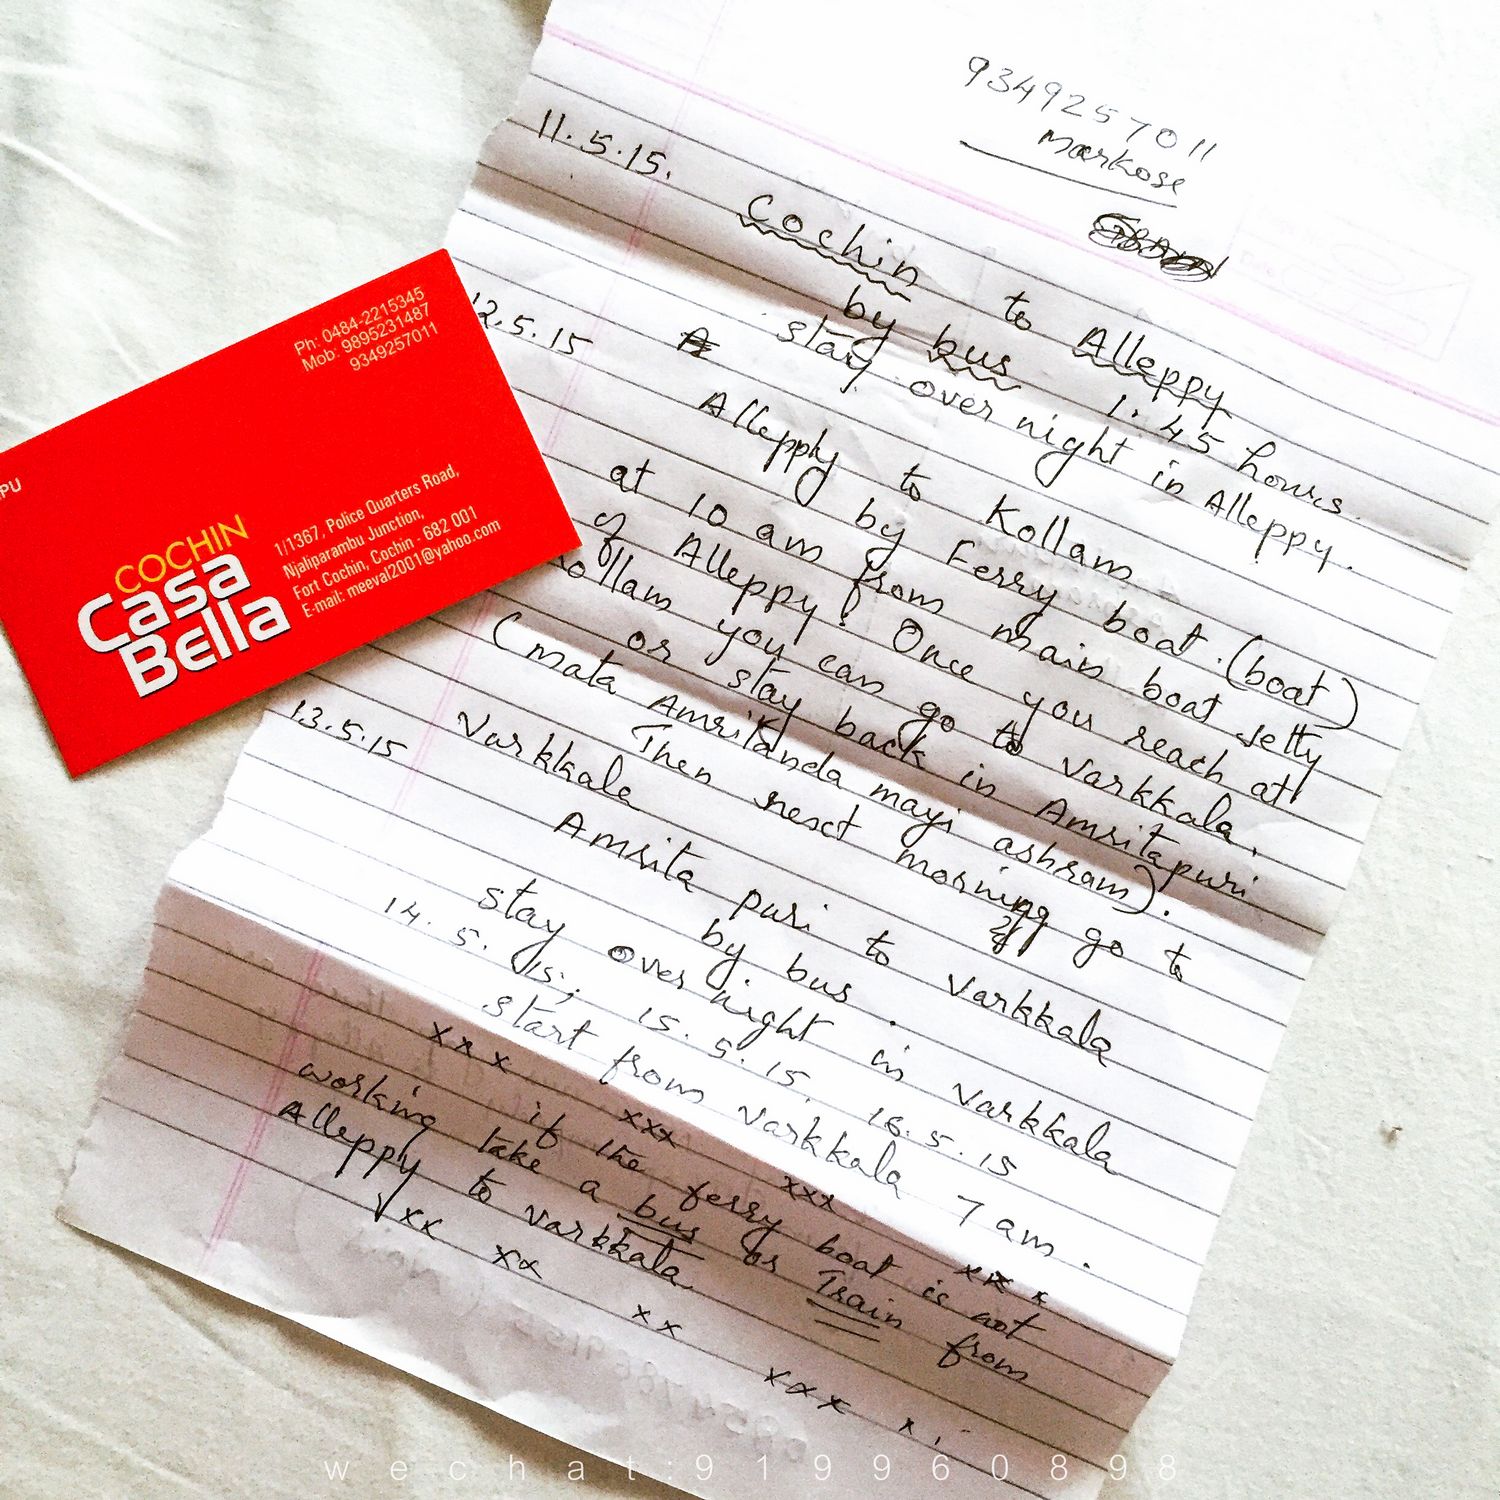 9349257011
Markose
11.5.15.
Cochin to Alleppy
by bus 1:45 hours.
stay over night in Alleppy.
12.5.15
Alleppy to Kollam
by Ferry boat. (boat)
at 10 am from main boat Jetty
of Alleppy. Once you reach at
Kollam you can go to Varkkala.
or stay back in Amritapuri
(mata Amritanda mayi ashram).
Then next morning go to
Varkkala
13.5.15
Amrita puri to Varkkala
by bus.
stay over night in Varkkala
14.5.15; 15.5.15, 16.5.15
start from Varkkala 7 am.
xxx xxx xxx xx x
if the ferry boat is not
working take a bus or Train from
Alleppy to Varkkala.
xx xx xx xxx x.
Ph: 0484-2215345
Mob: 9895231487
9349257011
PU
COCHIN
Casa
Bella
1/1367, Police Quarters Road,
Njaliparambu Junction,
Fort Cochin, Cochin - 682 001
E-mail: meeval2001@yahoo.com
wechat:919960898